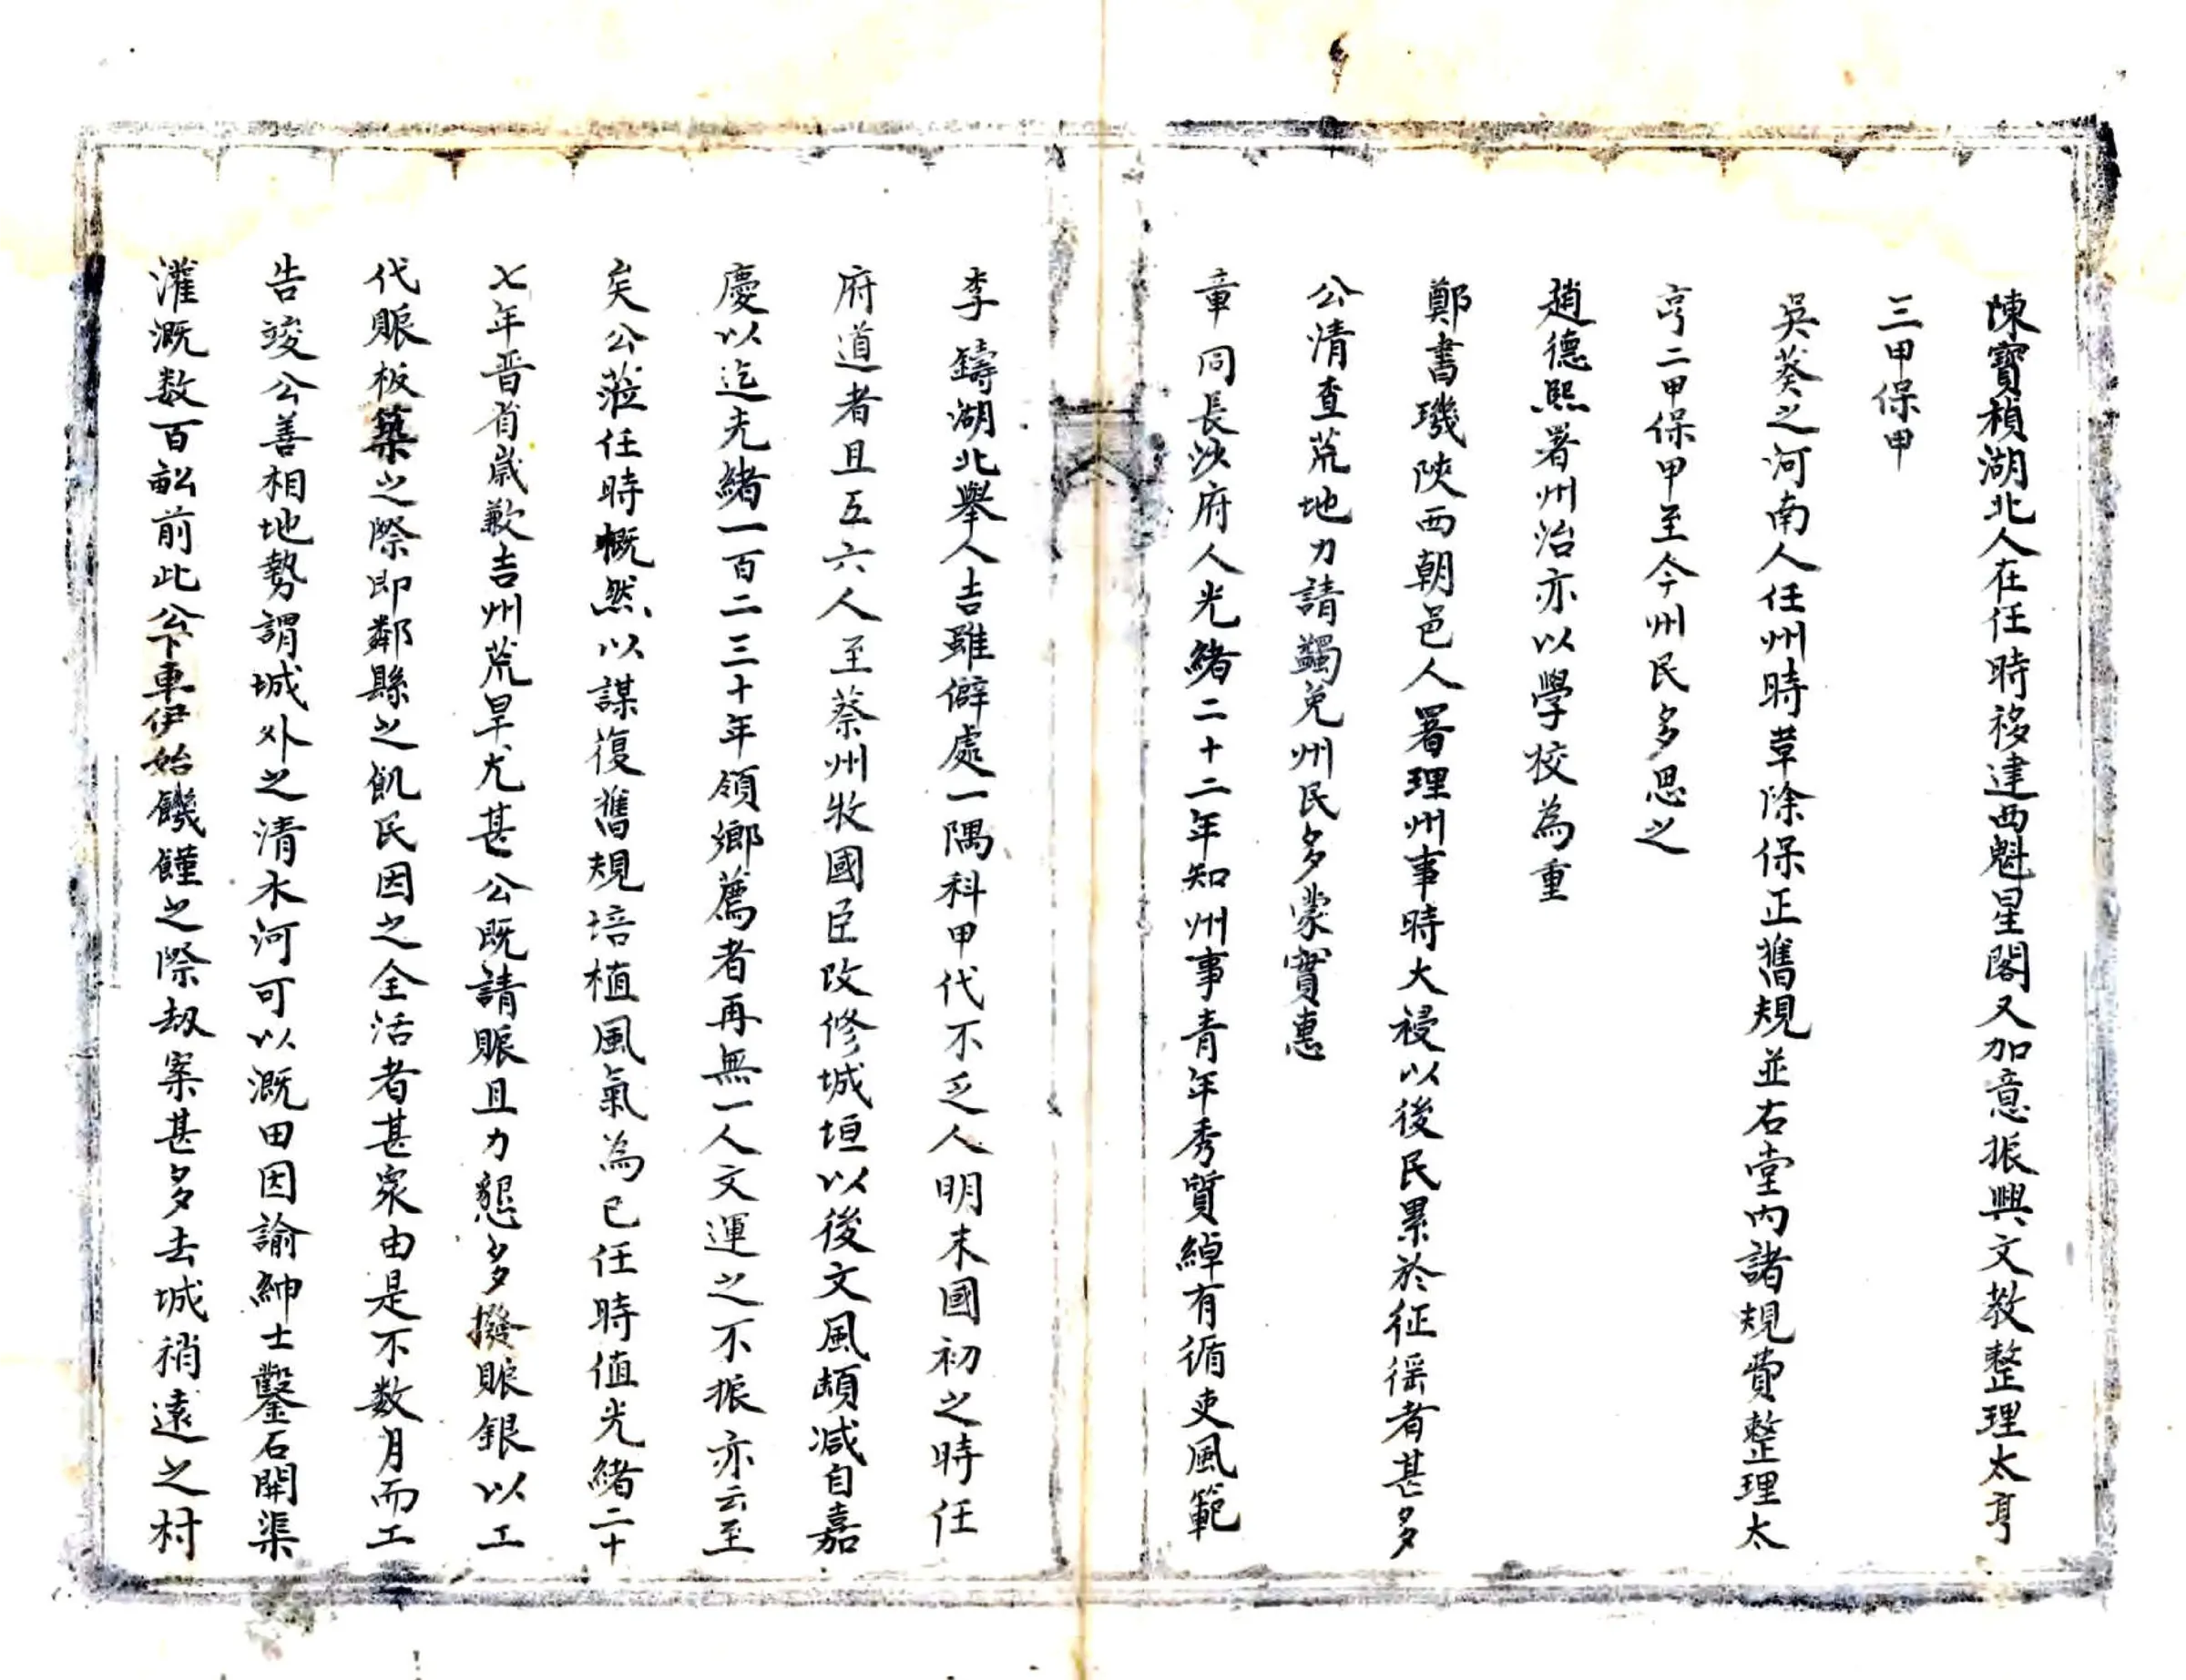 陳寶楨湖北人在任時移建西魁星閣又加意振興文教整理太亨
三甲保甲
吳葵之河南人任州時草除保正舊規並右堂內諸規費整理太
亨二甲保甲至今州民多思之
趙德熙署州治亦以學校為重
鄭書璣陝西朝邑人署理州事時大祲以後民累於征徭者甚多
公清查荒地力請蠲免州民多蒙實惠
章同長沙府人光緒二十二年知州事青年秀質綽有循吏風範
李鑄湖北舉人吉雖僻處一隅科甲代不乏人明末國初之時任
府道者且五六人至蔡州牧國臣改修城垣以後文風頓減自嘉
慶以迄光緒一百二三十年領鄉薦者再無一人文運之不振亦云至
矣公蒞任時概然以謀復舊規培植風氣為己任時值光緒二十
七年晋省歲歉吉州荒旱尤甚公既請賑且力懇多撥賑銀以工
代賑板築之際即鄰縣之飢民因之全活者甚眾由是不数月而工
告竣公善相地勢謂城外之清水河可以溉田因諭紳士鑿石開渠
灌溉数百畝前此公下車伊始饑饉之際刼案甚多去城稍遠之村